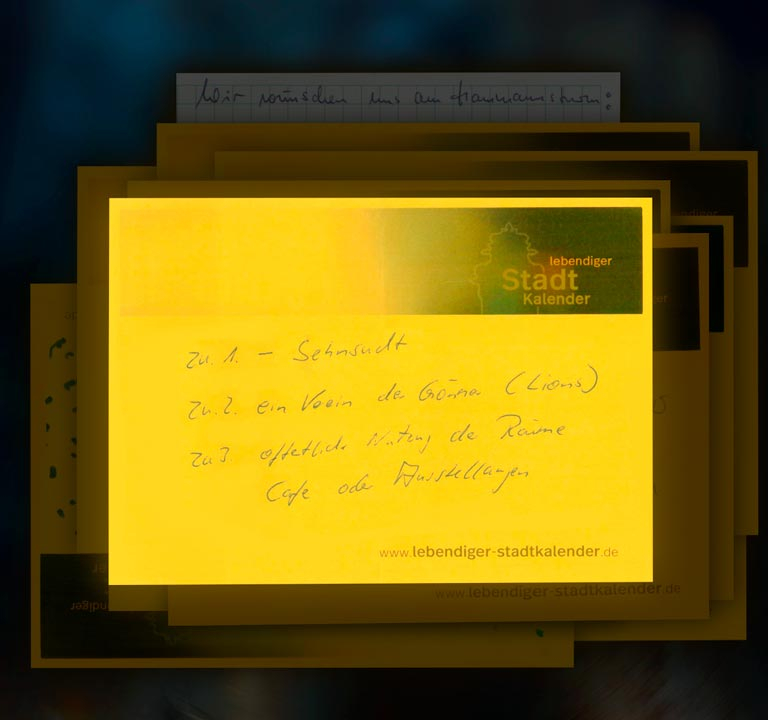 Wir wünschen uns am
lebendiger
Stadt
Kalender
zu. 1. – Sehnsucht
zu. 2. ein Verein der Gönner (Lions)
zu 3. öffetliche Nutzung der Räume
Cafe oder Ausstellungen
www.lebendiger-stadtkalender.de
www.lebendiger-stadtkalender.de